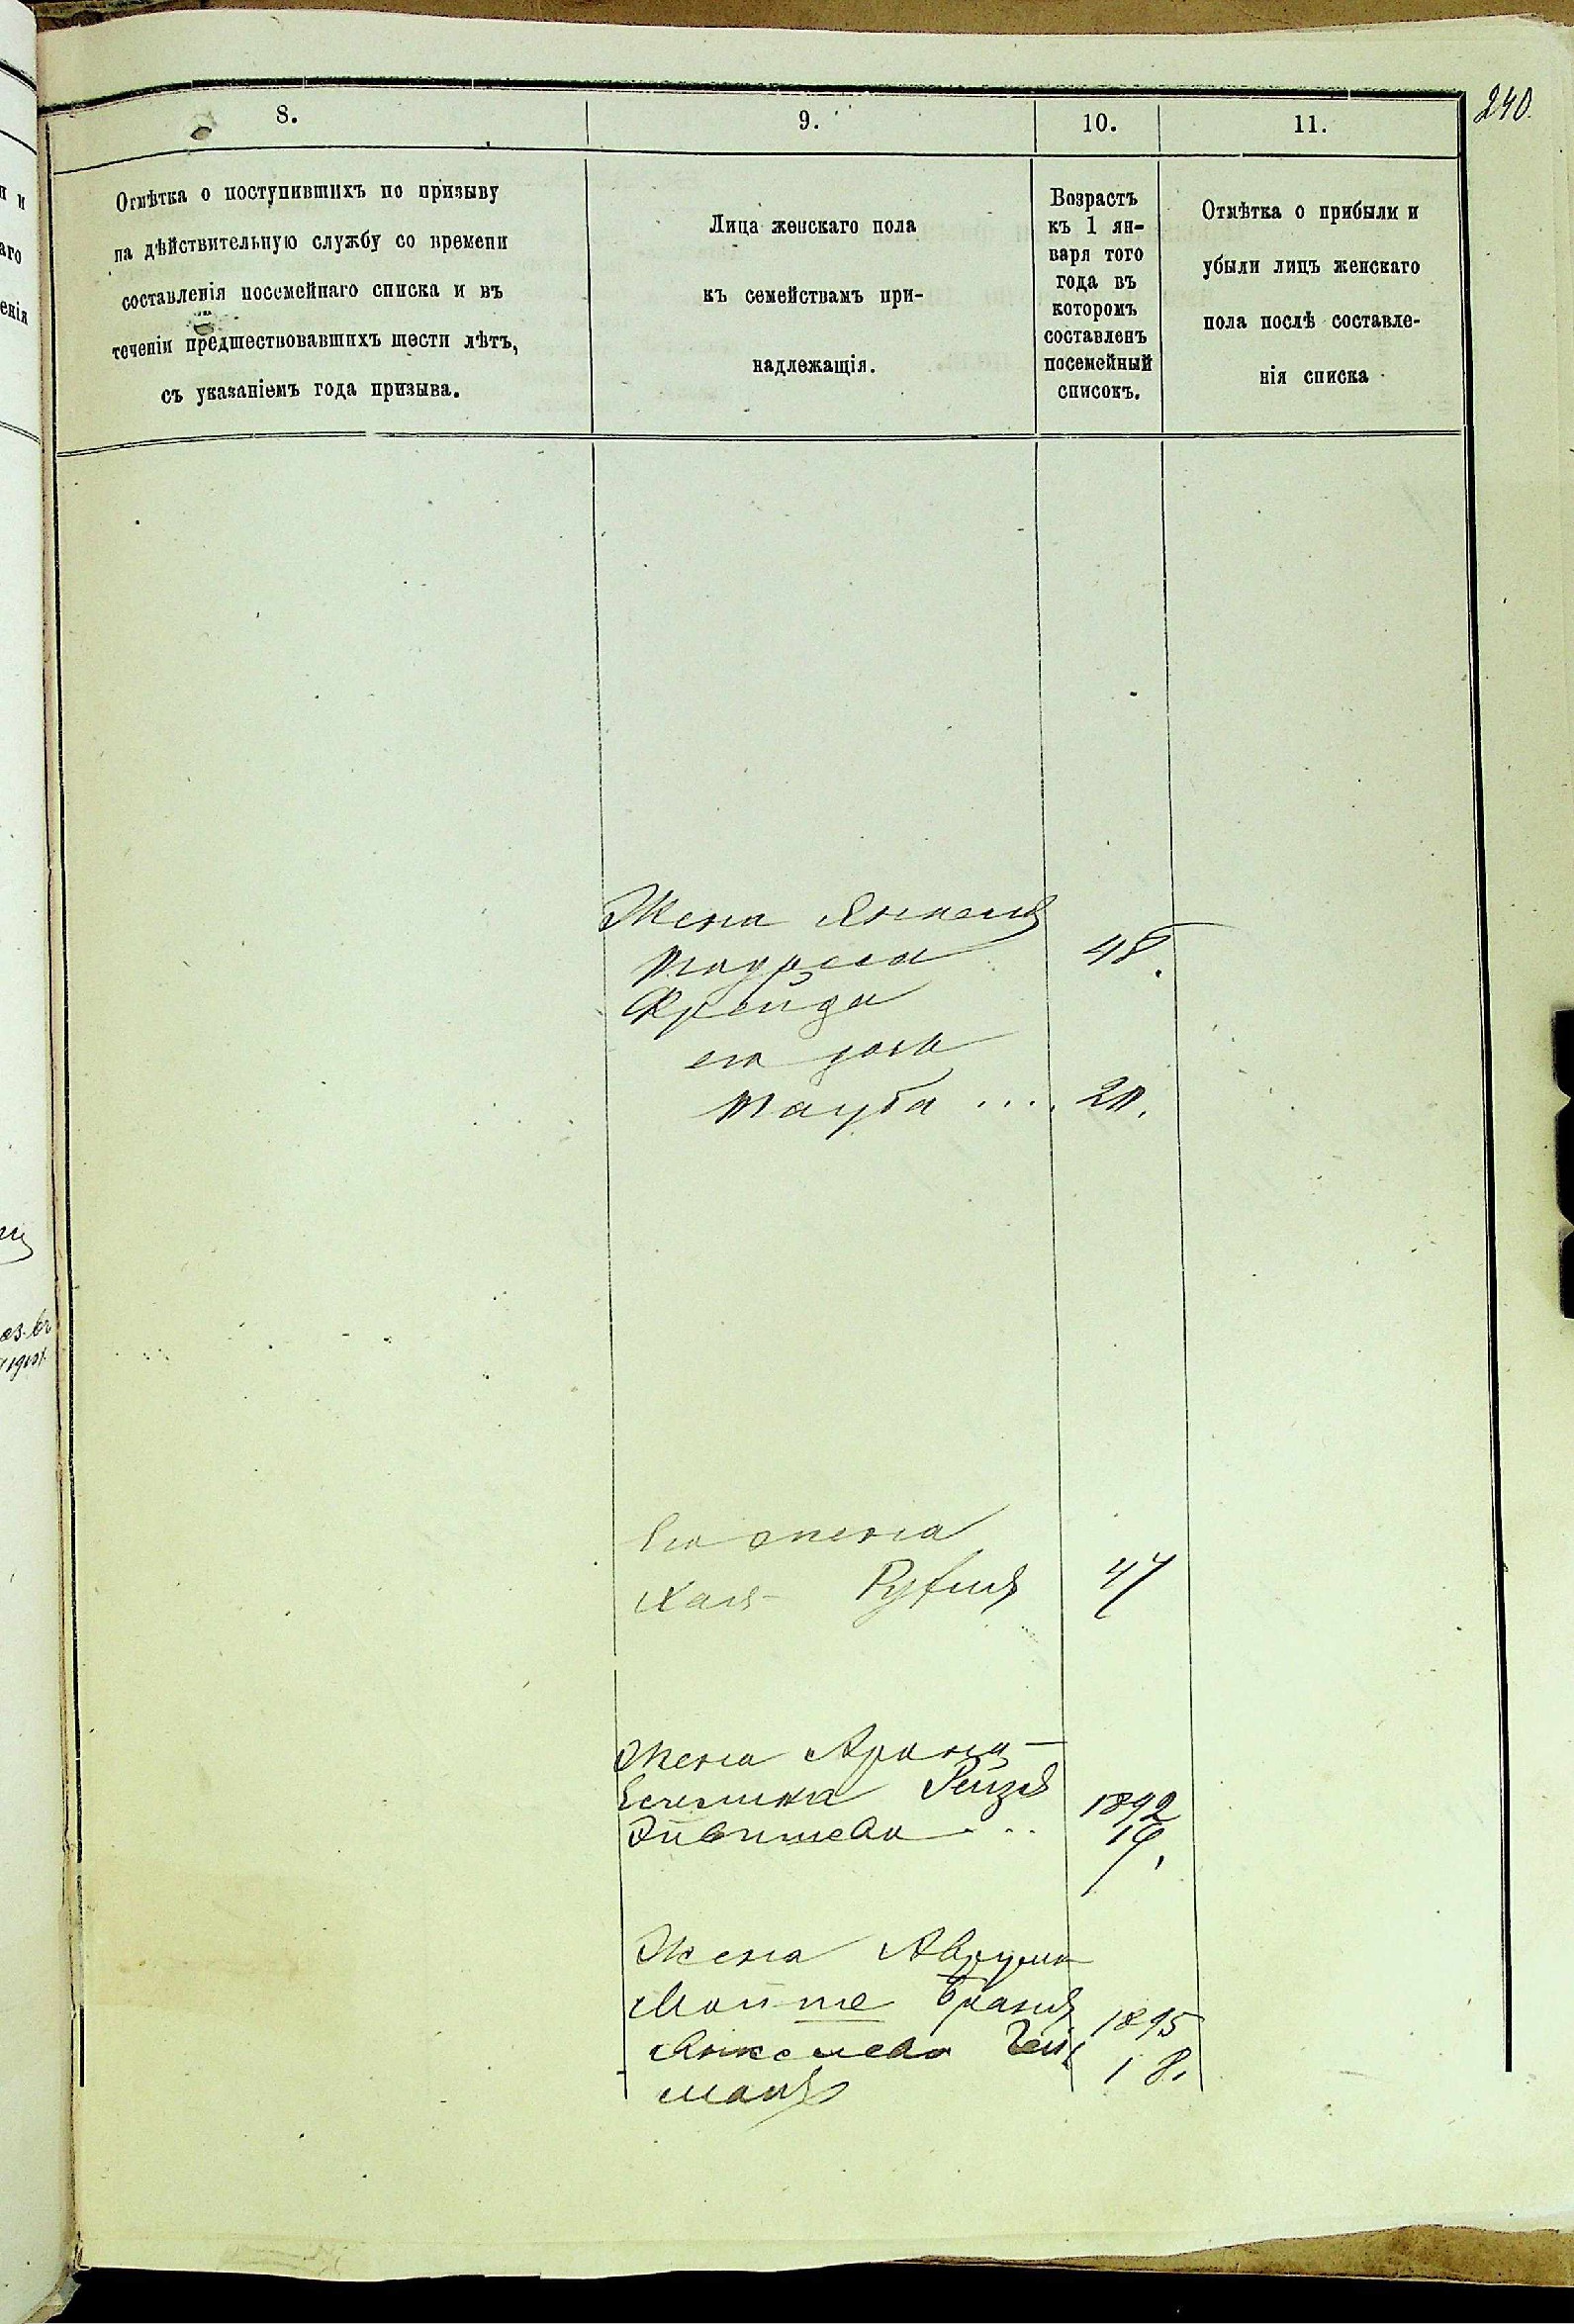 240.
8.
9.
10.
11.
Отмѣтка о поступившихъ по призыву
на дѣйствительную службу со времени
составленія посемейнаго списка и въ
теченіи предшествовавшихъ шести лѣтъ,
съ указаніемъ года призыва.
Лица женскаго пола
къ семействамъ при-
надлежащія.
Возрастъ
къ 1 ян-
варя того
года въ
которомъ
составленъ
посемейный
списокъ.
Отмѣтка о прибыли и
убыли лицъ женскаго
пола послѣ составле-
нія списка
Жена Янкеля
48.
Фрейда
его дочь
Тауба .... 20.
Его жена
Хая 47
Жена Арона
Рейзя 1892
19.
Жена Аврума
Мойше Браня 1895
Янкелева 18.